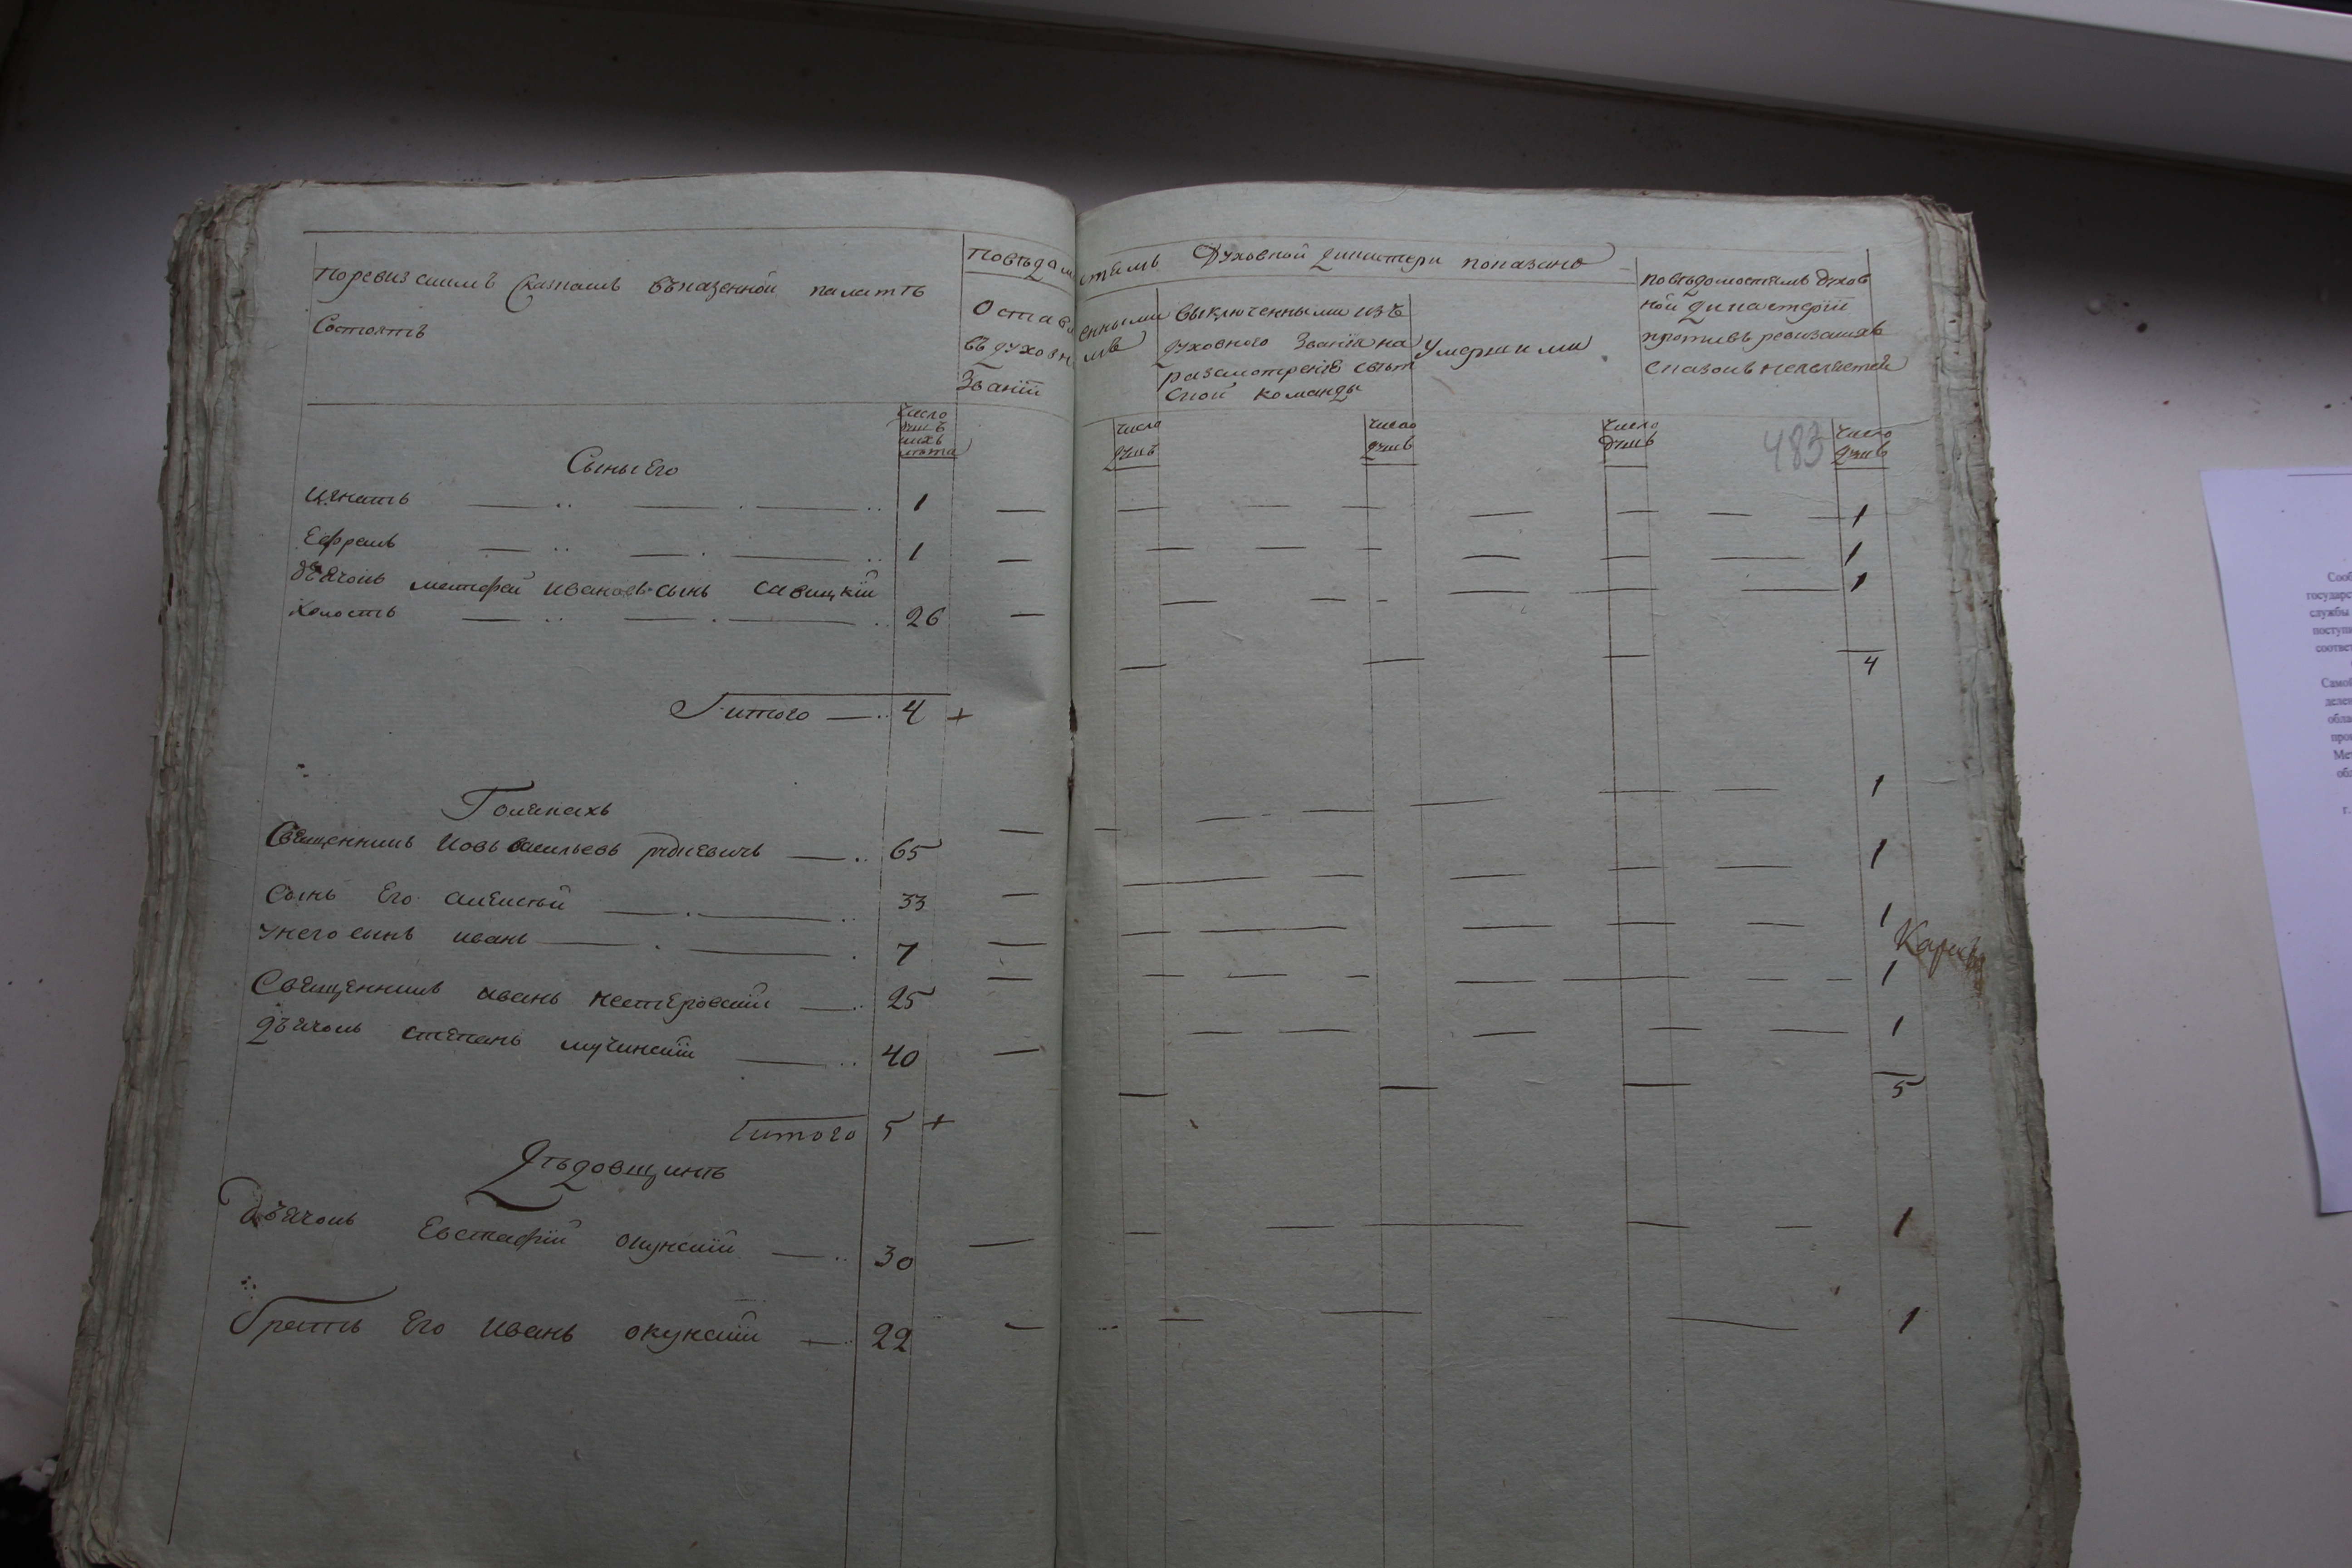 по ревизскимъ сказкамъ въ казенной палатѣ
Состоятъ
По вѣдомостямъ Духовной дикастери показано
Оставленными
въ духовномъ
Званiи
выключенными изъ
духовного званiя на
разсмотренiе свѣт
ской команды
Умершими
по вѣдомостямъ духов
ной дикастерiи
противъ ревизскихъ
сказокъ неявляется
число
душъ
ихъ
лѣта
число
душъ
число
душъ
число
душъ
483
число
душъ
Сыны Его
Игнатъ 1 1
Ефремъ 1 1
дъячокъ матфей Ивановъ сынъ савицкiй 1
холостъ 26
4
Итого 4 +
Голенахъ
Священникъ Иовъ васильевъ 65 1
Сынъ Его алексѣй 33 1
У него сынъ иванъ 7 1
Карп
Священникъ иванъ нестеровскiй 25 1
дъячокъ степанъ мучинскiй 40 1
5
итого 5 +
Дѣдовщинѣ
дъячокъ Евстафiй окунскiй 30 1
братъ Его Иванъ окунскiй 22 1